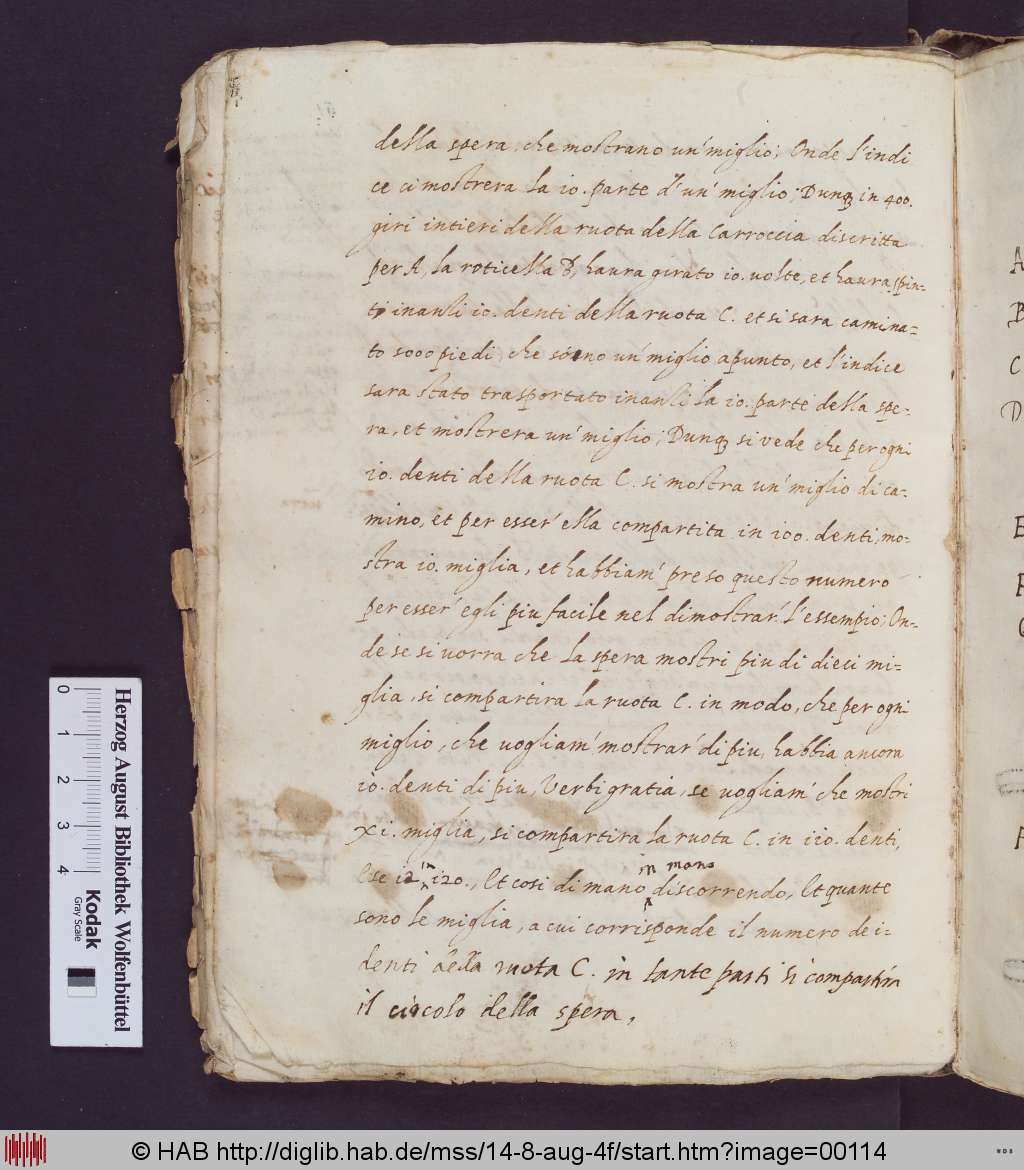 della spera, che mostrano un' miglio; Onde l'indi
ce ci mostrera la 10. parte d'un' miglio; Dunq; in 400.
giri intieri della ruota della Carroccia discritta
per A, la roticella D, haura girato 10. volte, et haura spin=
ti inanti 10. denti della ruota C. et si sara camina=
to 5000 piedi, che sono un' miglio apunto, et l'indice
sara stato trasportato inanti la 10. parte della spe=
ra, et mostrera un' miglio; Dunq; si vede che per ogni
10. denti della ruota C. si mostra un' miglio di ca=
mino, et per esser' ella compartita in 100. denti, mo=
stra 10. miglia, et habbiam' preso questo numero
per esser' egli piu facile nel dimostrar' l'essempio; On=
de se si vorra che la spera mostri piu di dieci mi=
glia, si compartira la ruota C. in modo, che per ogni
miglio, che vogliam' mostrar' di piu, habbia ancora
10. denti di piu, Verbi gratia, se vogliam' che mostri
xi. miglia, si compartira la ruota C. in 110. denti,
Et se 12 in 120., Et cosi di mano in mano discorrendo, Et quante
sono le miglia, a cui corrisponde il numero dei=
denti della ruota C. in tante parti si compartira
il circolo della spera,
A
B
C
D
E
F
Herzog August Bibliothek Wolfenbüttel
0 1 2 3 4
Kodak
Gray Scale
© HAB http://diglib.hab.de/mss/14-8-aug-4f/start.htm?image=00114